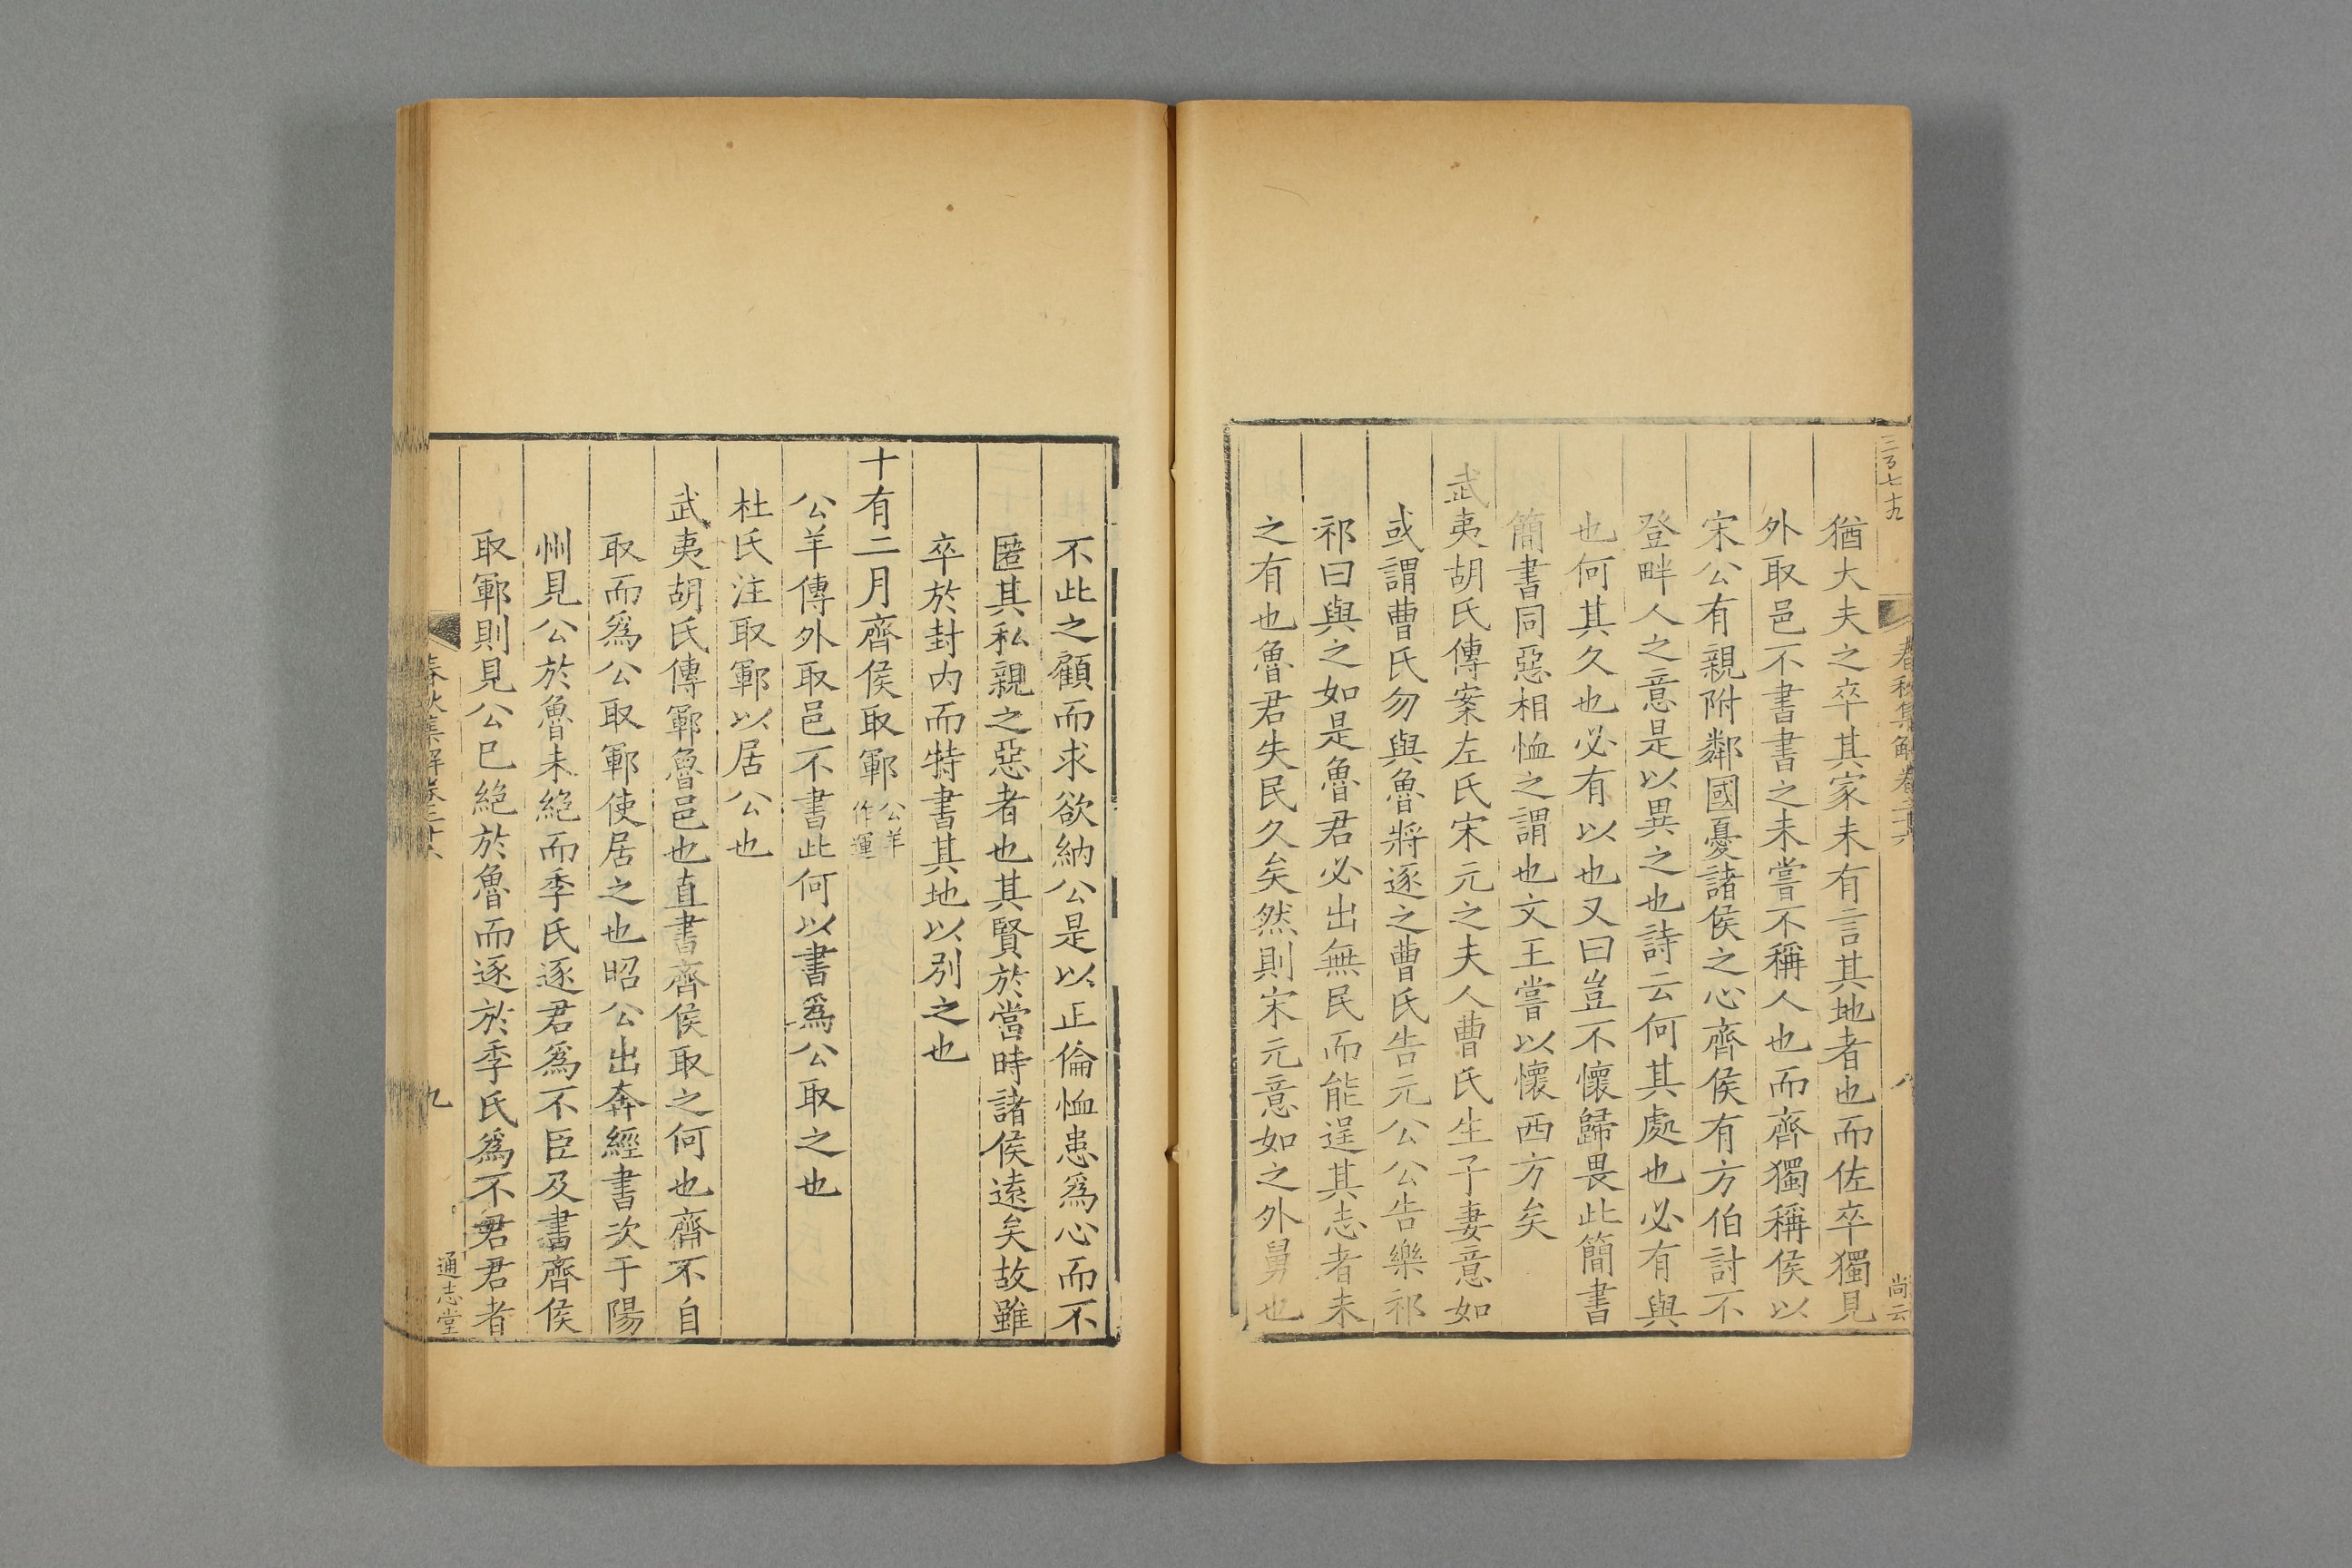 三百七十九
春秋集解卷二十六
八
尚云
猶大夫之卒其家未有言其地者也而佐卒獨見
外取邑不書書之未嘗不稱人也而齊獨稱侯以
宋公有親附鄰國憂諸侯之心齊侯有方伯討不
登畔人之意是以異之也詩云何其處也必有與
也何其久也必有以也又曰豈不懷歸畏此簡書
簡書同惡相恤之謂也文王嘗以懷西方矣
武夷胡氏傳案左氏宋元之夫人曹氏生子妻意如
或謂曹氏勿與魯將逐之曹氏告元公公告樂祁
祁曰與之如是魯君必出無民而能逞其志者未
之有也魯君失民久矣然則宋元意如之外舅也
不此之顧而求欲納公是以正倫恤患爲心而不
匿其私親之惡者也其賢於當時諸侯遠矣故雖
卒於封內而特書其地以別之也
十有二月齊侯取鄆公羊作運
公羊傳外取邑不書此何以書爲公取之也
杜氏注取鄆以居公也
武夷胡氏傳鄆魯邑也直書齊侯取之何也齊不自
取而爲公取鄆使居之也昭公出奔經書次于陽
州見公於魯未絕而季氏逐君爲不臣及書齊侯
取鄆則見公已絕於魯而逐於季氏爲不君君者
春秋集解卷二十六
九
通志堂